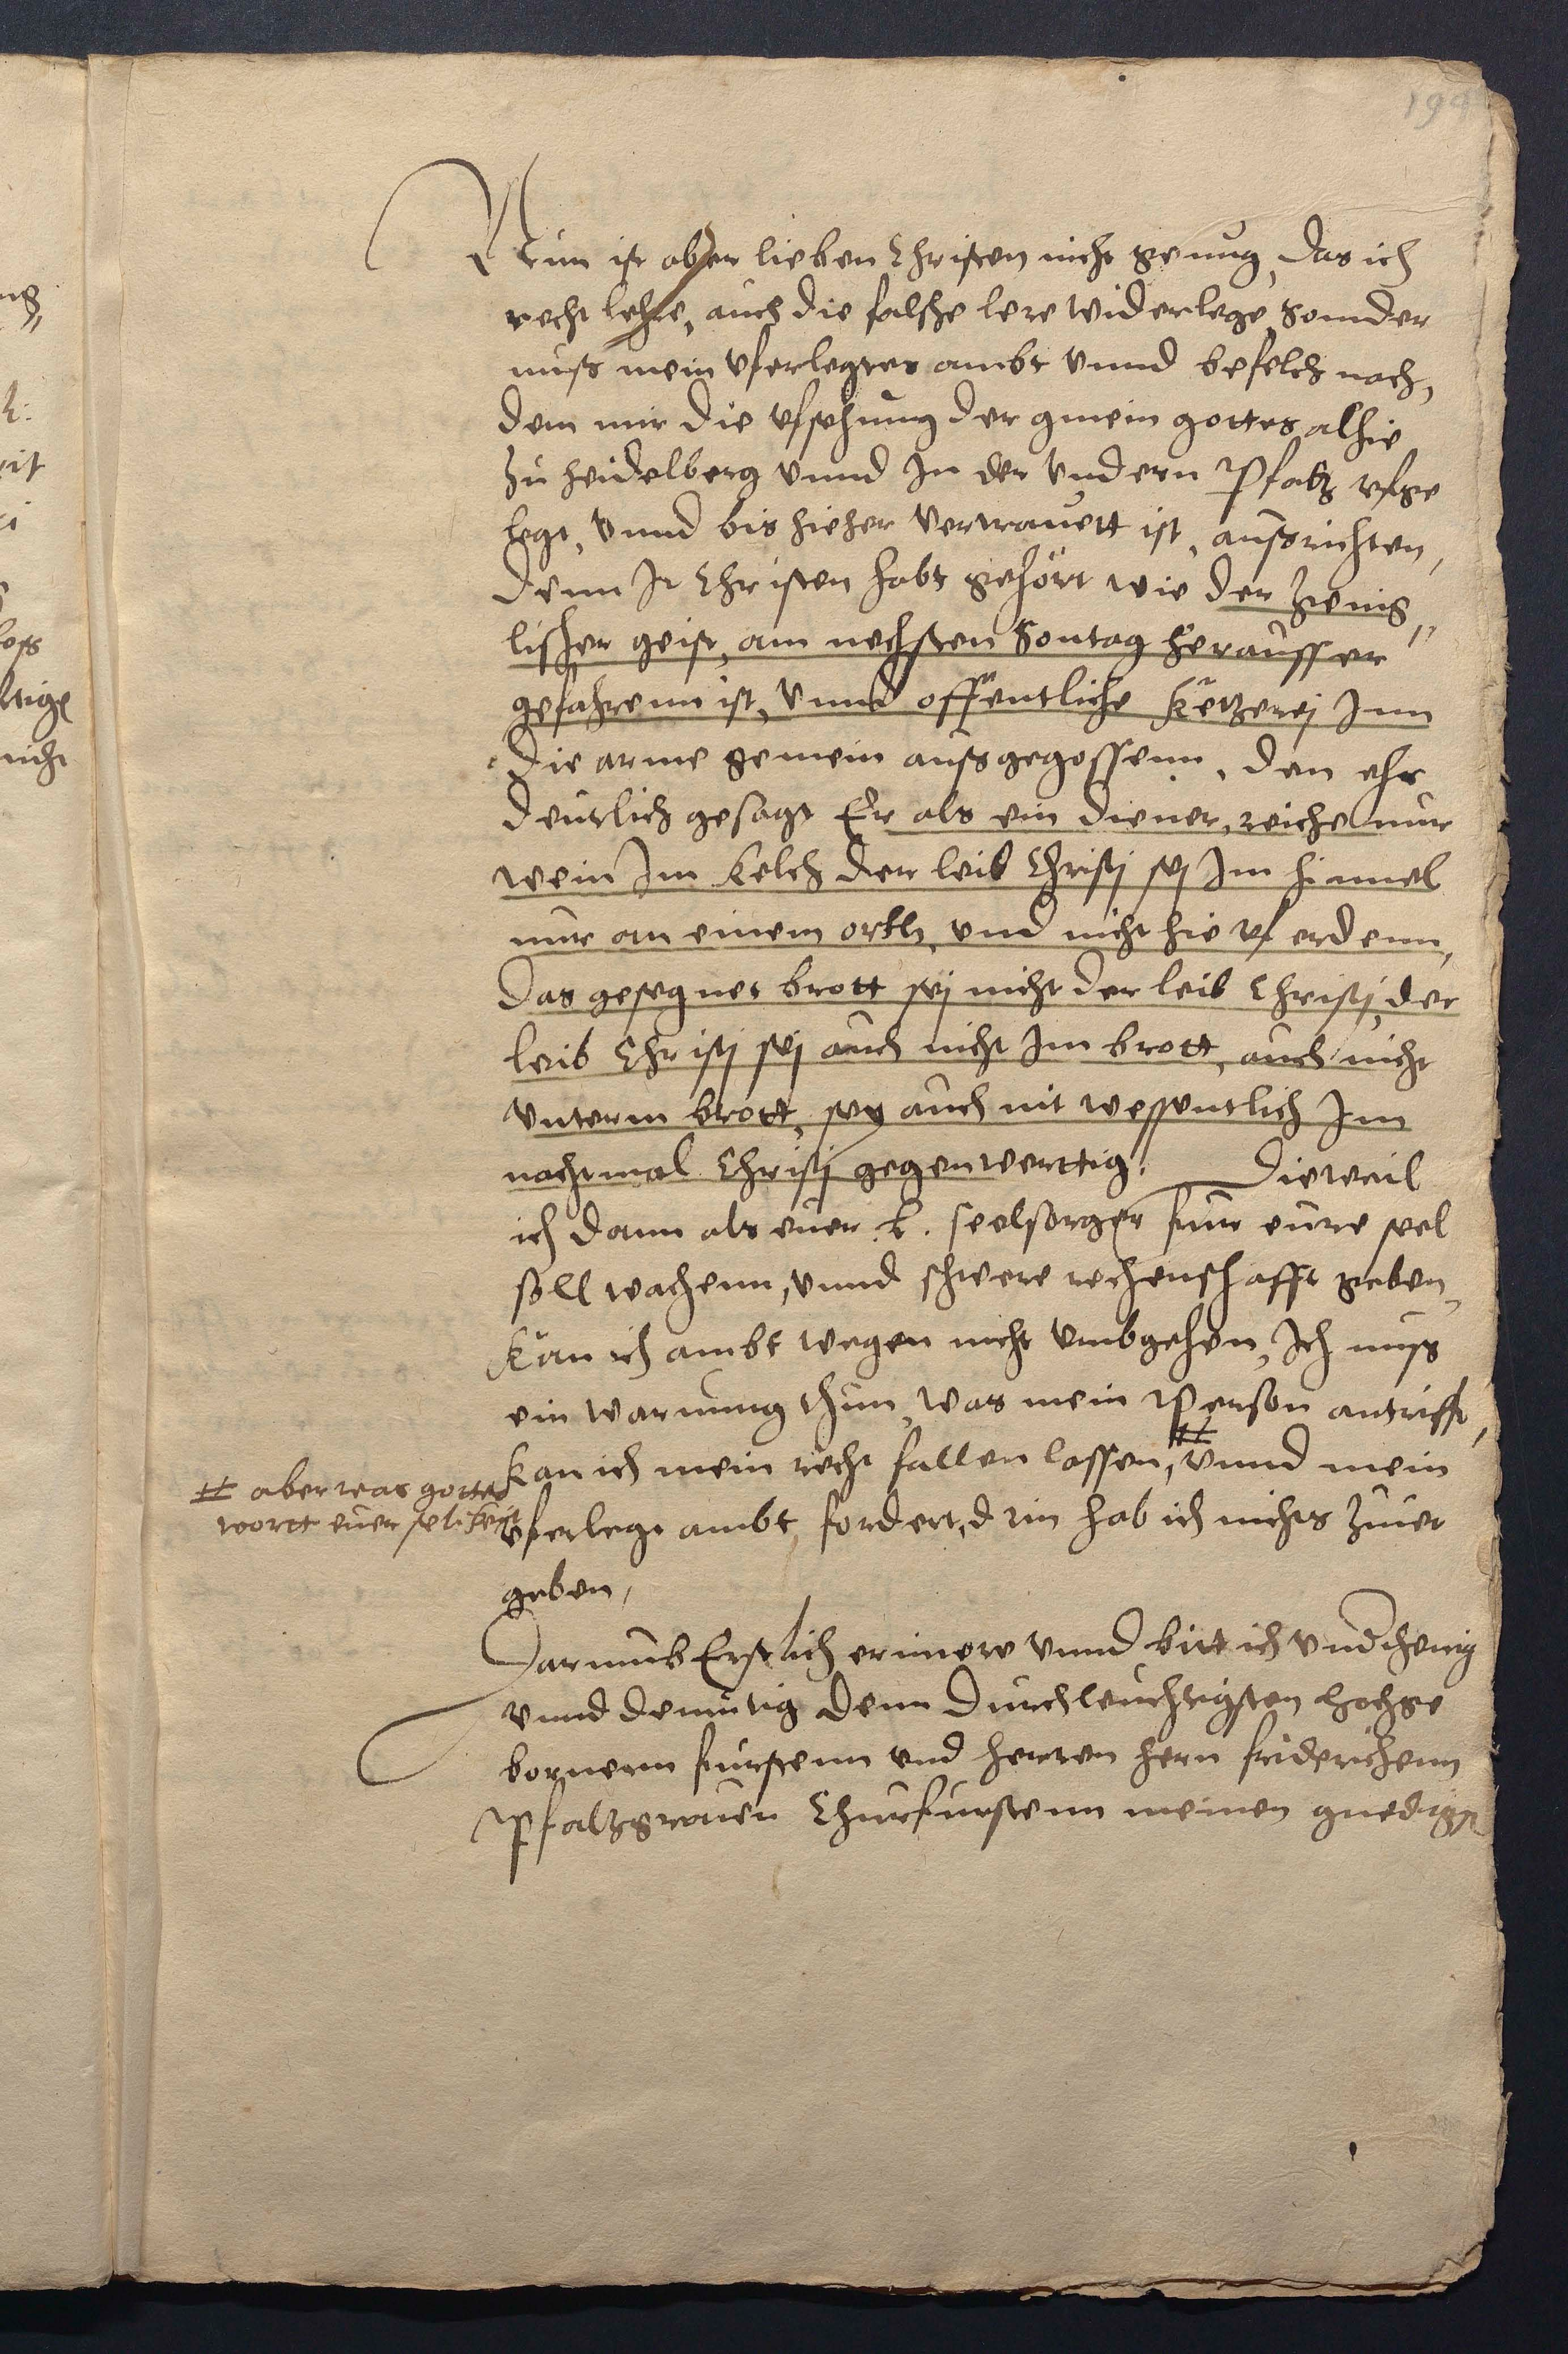 194
Nun ist aber lieben Christen nicht genug, das ich
recht lehre, auch die falsche lere widerlege, Sonder
muss mein vferlegtes ambt vnnd befelch nach,
dem mir die vfsehung der gmein gottes alhie
zu heidelberg vnnd In der vndern Pfaltz vfge
legt, vnnd bis hieher vertrauett ist, aussrichten,
Denn Ir Christen habt gehört wie der zwing,,
lischer geist, am nechsten Sontag herausser
gefahrenn ist, vnnd offentliche Ketzerej Inn
die arme gemein aussgegossenn, den ehr
deutlich gesagt Er als ein diener, reiche nur
wein Im Kelch der leib Christj sej Im himel
nur an einem orth, vnd nicht hie vf erdenn,
Das gesegnet brott sej nicht der leib Christj, der
leib Christj sej auch nicht Im brott, auch nicht
vnterm brott, sey auch nit wessentlich Im
nachtmal Christj gegenwerttig. Dieweil
ich dann als euer .k. seelsorger fur eure seel
soll wachenn, vnnd schwere rechenschafft geben,
Kan ich ambt wegen nicht vmbgehen, Ich muss
ein warnung thun, was mein Person antrifft,
kan ich mein recht fallen lassen, # vnnd mein
# aber was gottes
wortt euer selikeit
vferlegt ambt, fordert, drin hab ich nichts zuuer
geben,
Darumb Erstlich erinere vnnd bitt ich vnderthenig
vnnd demutig denn Durchleuchtigsten hochge
bornenn furstenn vnd herren hern friderichenn
Pfaltzgrauen Churfurstenn meinen gnedigst